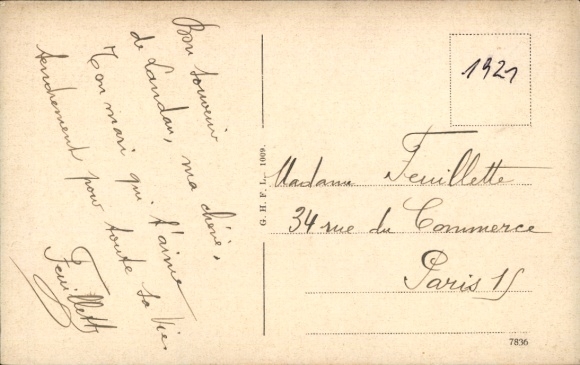 Bon souvenir
de Landau, ma chérie,
Ton mari qui t'aime
tendrement pour toute sa vie.
Feuillette
G. H. F. L., 1009.
1921
Madame Feuillette
34 rue du Commerce
Paris 15
7836